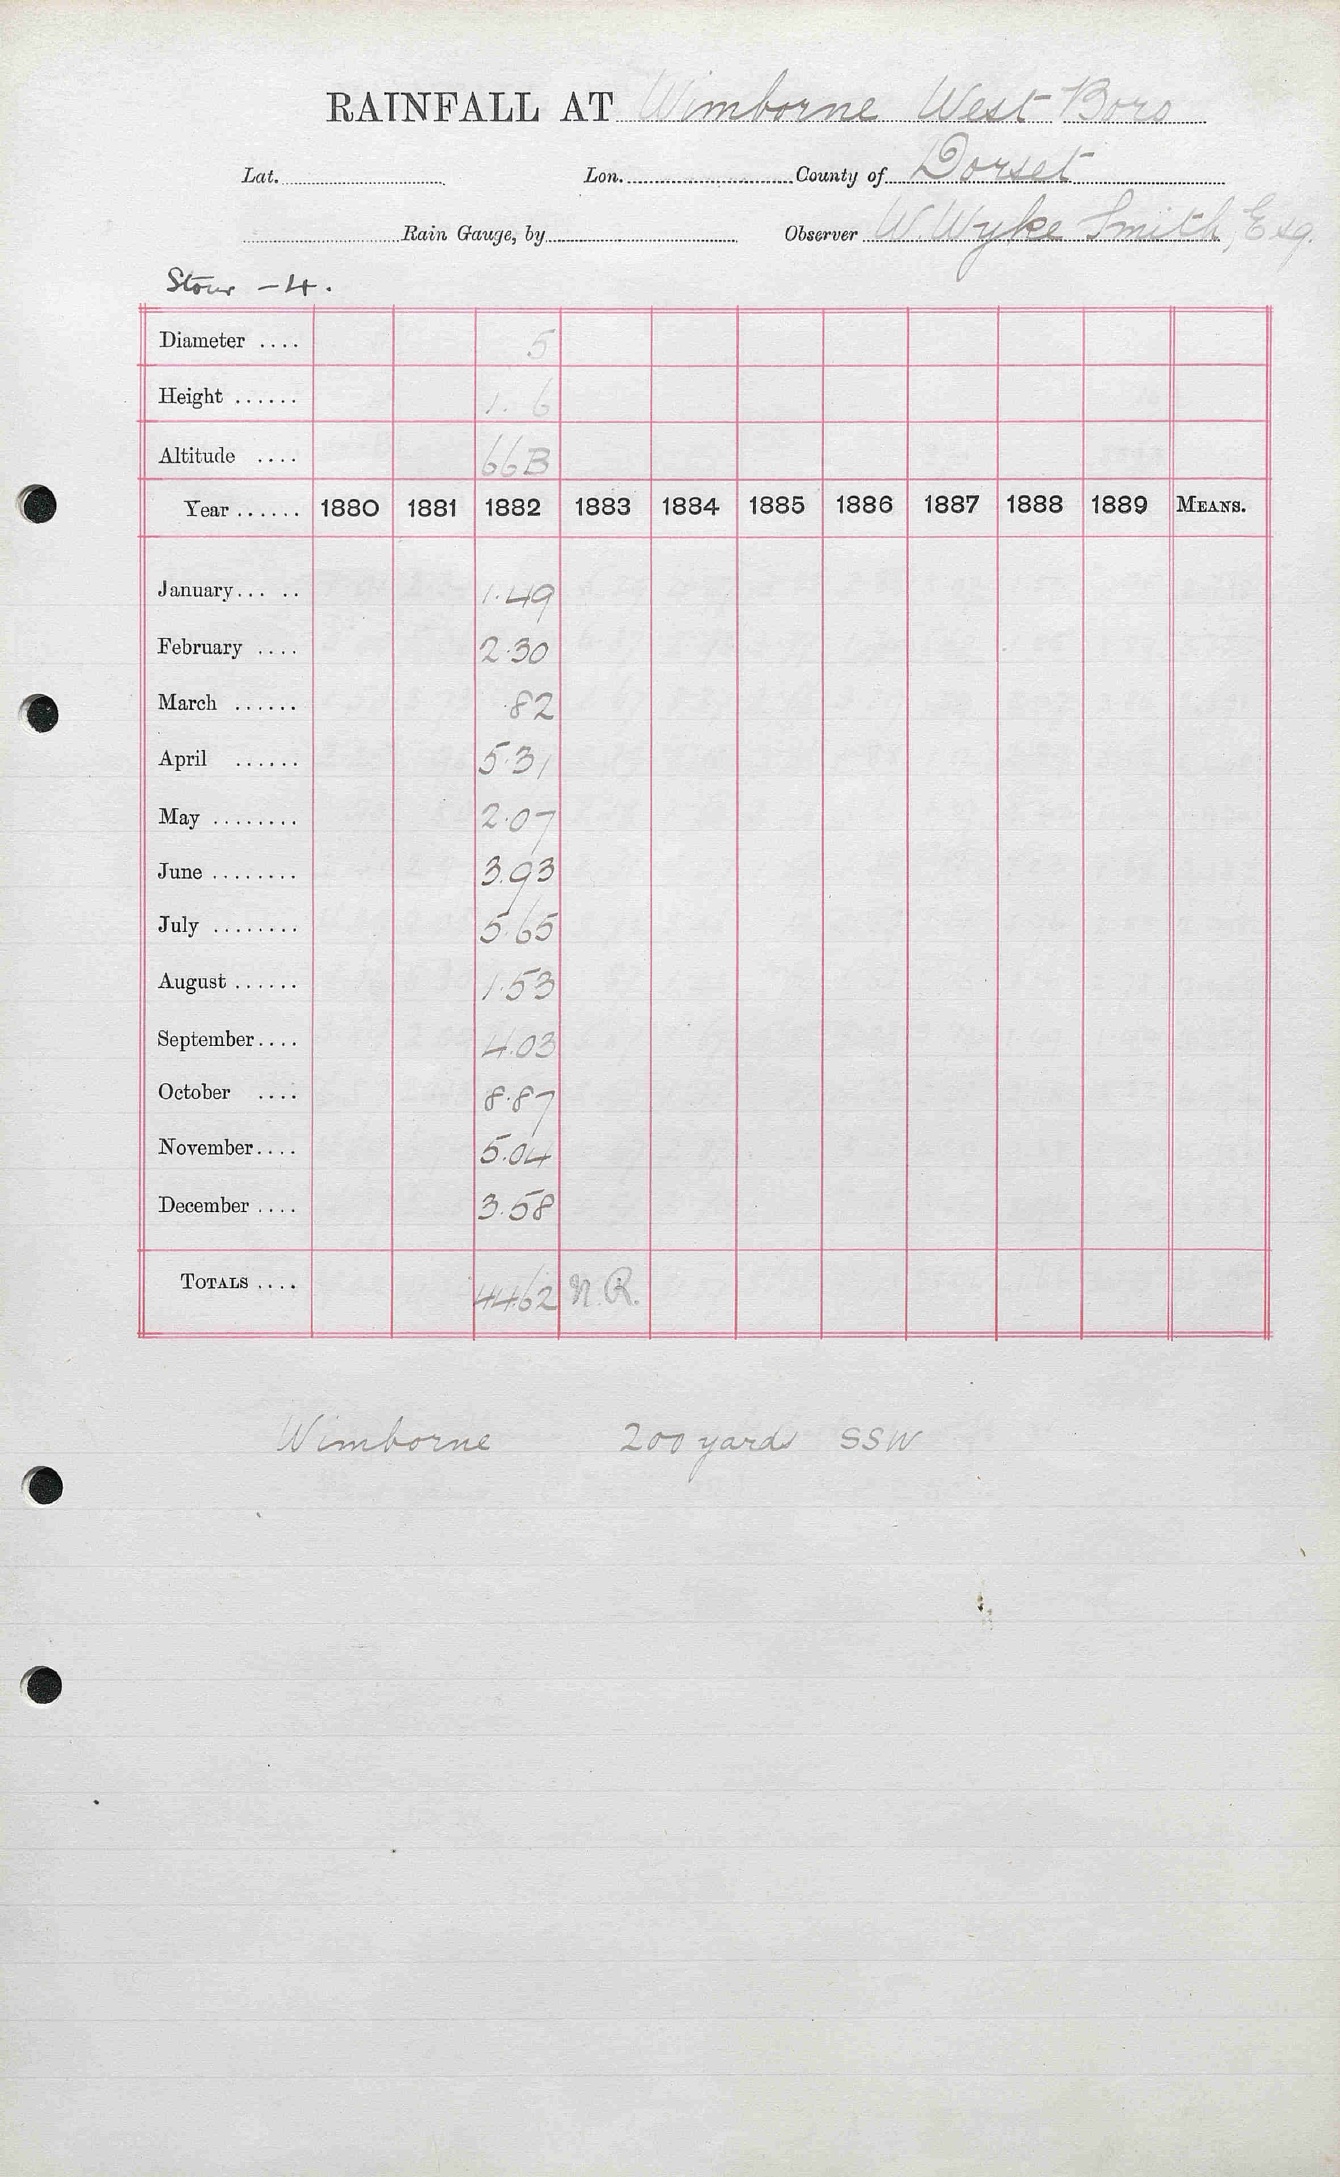 RAINFALL AT Wimborne West Boro
Lat. Lon. County of Dorset
Rain Gauge, by Observer W. Wyke Smith, Esq.
Stour - 4.
Diameter .... 5
Height ...... 1. 6
Altitude .... 66B
Year ...... 1880 1881 1882 1883 1884 1885 1886 1887 1888 1889 MEANS.
January... .. 1.49
February .... 2.30
March ...... .82
April ...... 5.31
May ........ 2.07
June ........ 3.93
July ........ 5.65
August ...... 1.53
September.... 4.03
October .... 8.87
November.... 5.04
December .... 3.58
TOTALS .... 44.62 N.R.
Wimborne 200 yards SSW